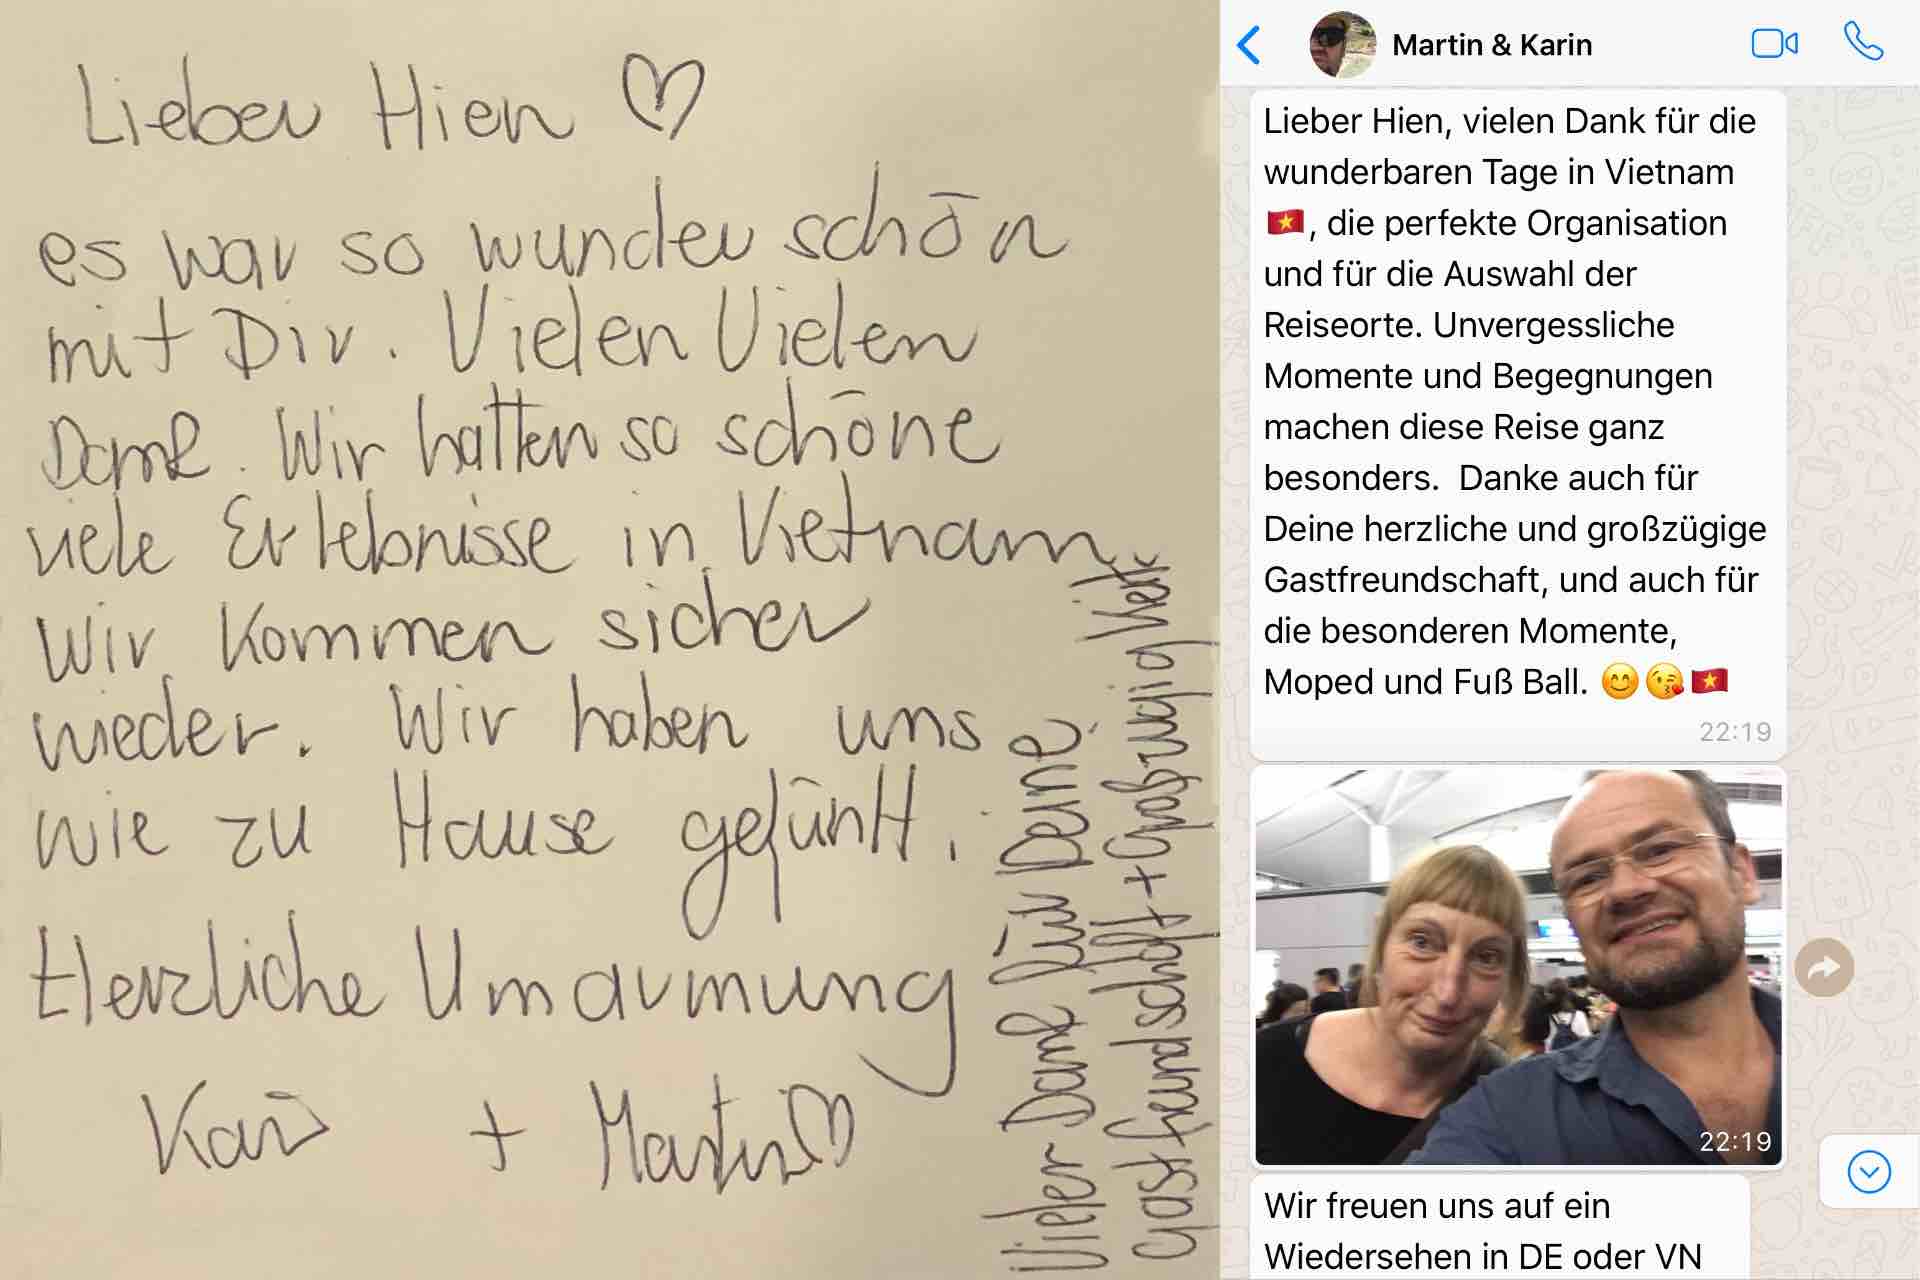 Lieber Hien ♡
es war so wunderschön
mit Dir. Vielen Vielen
Dank. Wir hatten so schöne
viele Erlebnisse in Vietnam
Wir kommen sicher
wieder. Wir haben uns
wie zu Hause gefühlt.
Herzliche Umarmung
Karin + Martin ♡
Vielen Dank für Deine
Gastfreundschaft + Großzügigkeit
Martin & Karin
Lieber Hien, vielen Dank für die
wunderbaren Tage in Vietnam
🇻🇳, die perfekte Organisation
und für die Auswahl der
Reiseorte. Unvergessliche
Momente und Begegnungen
machen diese Reise ganz
besonders.  Danke auch für
Deine herzliche und großzügige
Gastfreundschaft, und auch für
die besonderen Momente,
Moped und Fuß Ball. 😊😘🇻🇳
22:19
22:19
Wir freuen uns auf ein
Wiedersehen in DE oder VN